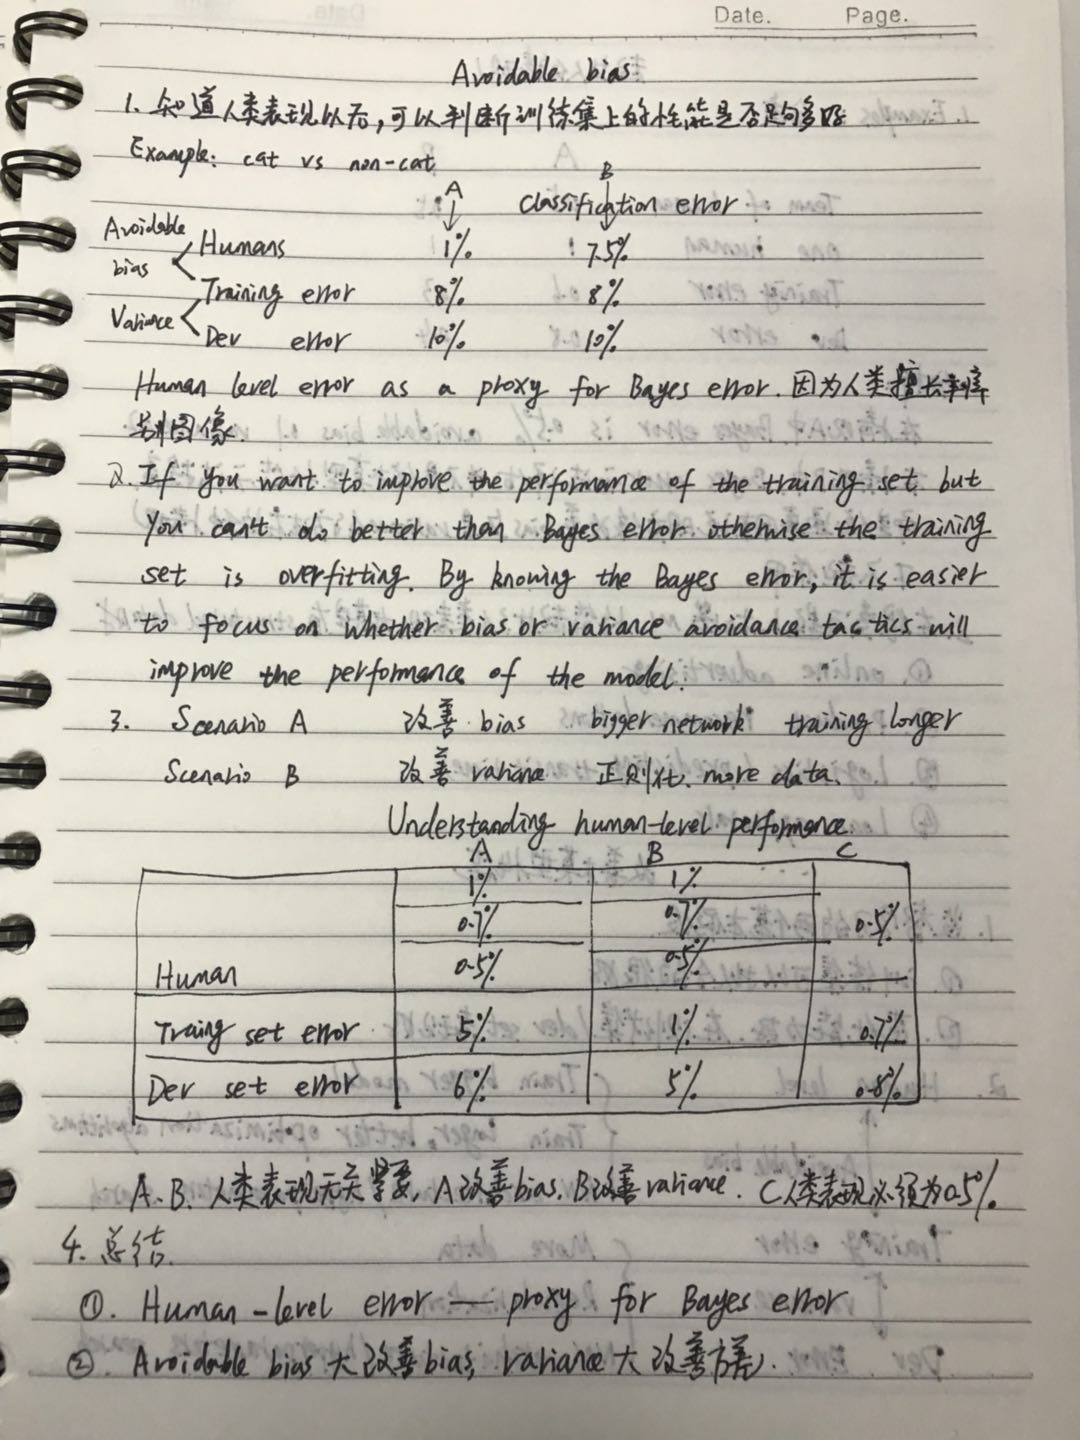 Date. Page.
Avoidable bias
1. 知道人类表现以后,可以判断训练集上的性能是否足够多好
Example: cat vs non-cat
A B
Classification error
Avoidable bias Humans 1% 7.5%
Training error 8% 8%
Variance Dev error 10% 10%
Human level error as a proxy for Bayes error. 因为人类擅长辨
别图像
2. If you want to improve the performance of the training set but
you can't do better than Bayes error otherwise the training
set is overfitting. By knowing the Bayes error, it is easier
to focus on whether bias or variance avoidance tactics will
improve the performance of the model.
3. Scenario A 改善 bias bigger network training longer
Scenario B 改善 variance 正则化、more data.
Understanding human-level performance
A B C
1% 1%
0.7% 0.7% 0.5%
Human 0.5% 0.5%
Traing set error 5% 1% 0.7%
Dev set error 6% 5% 0.8%
A.B. 人类表现无关紧要, A改善bias. B改善variance. C人类表现必须为0.5%.
4. 总结.
①. Human-level error — proxy for Bayes error
②. Avoidable bias 大 改善bias, variance 大 改善方差.